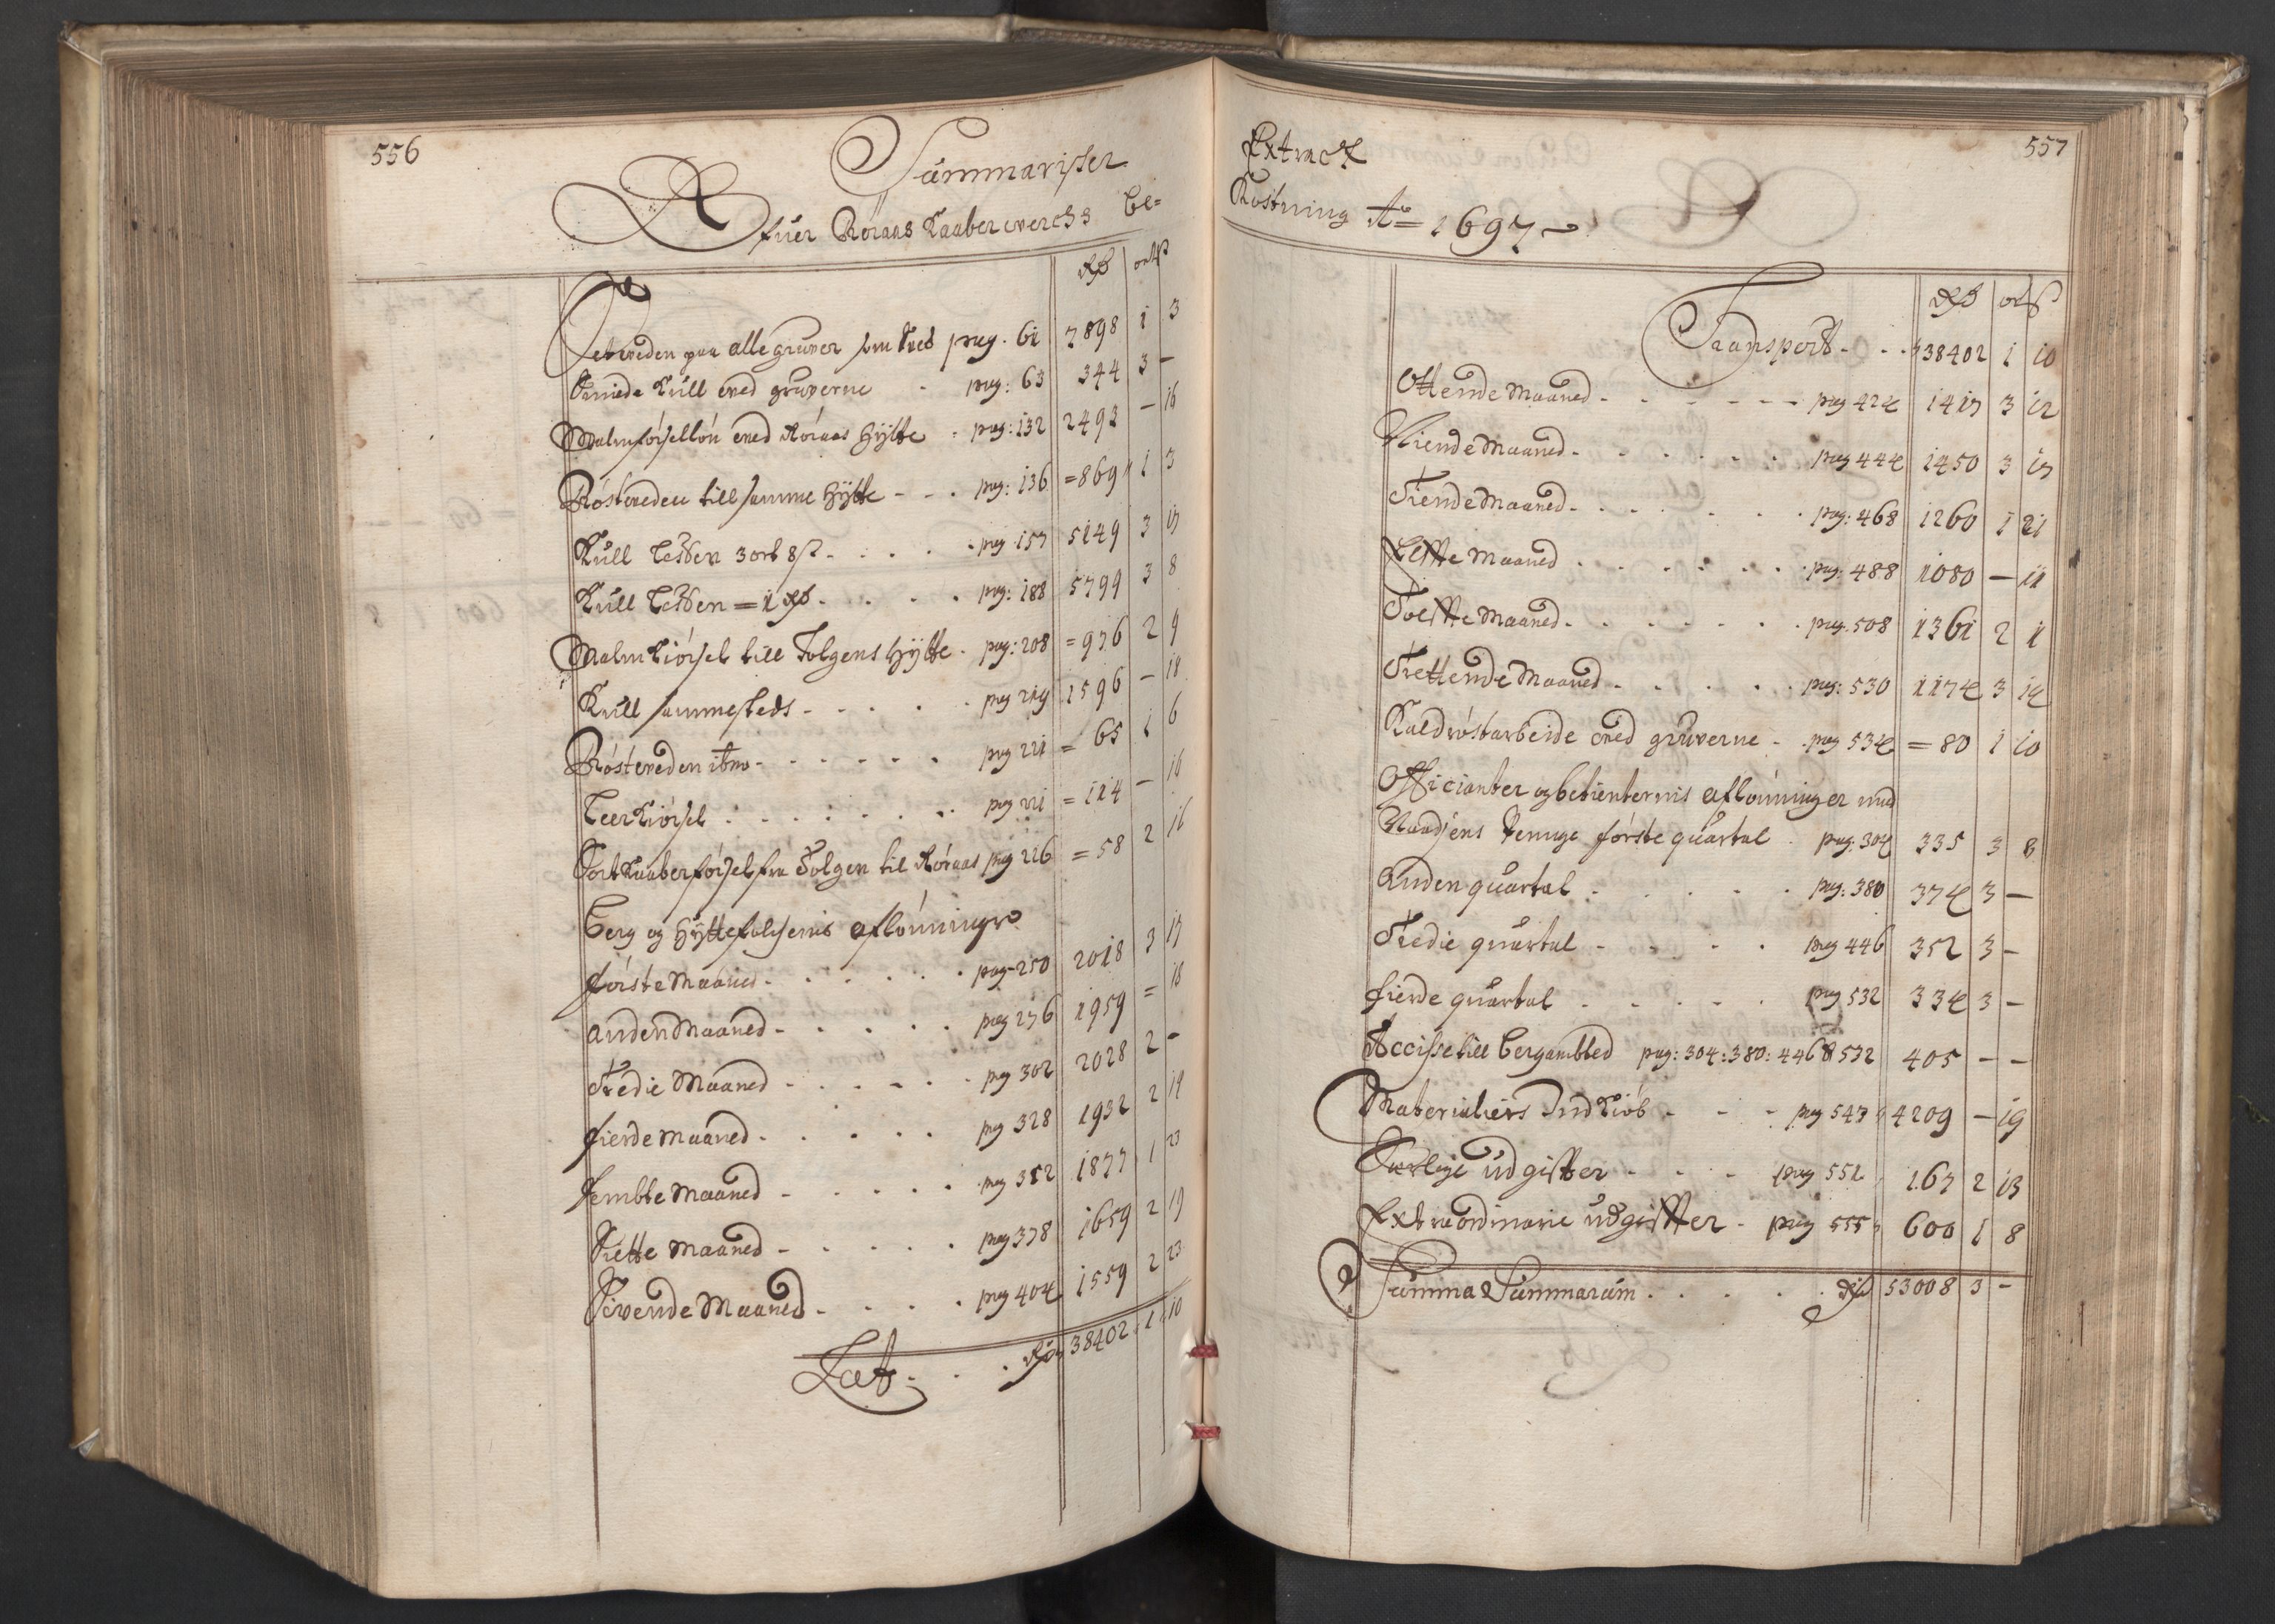 556
Summarischer
Ofuer Röraas Kaaberwerchs be=
Rdr ort ß
Setveden paa alle gruver som ved pag. 61 7898 1 3
Smiede Kull ved gruverne - pag: 63 344 3 -
Malmförsellön ved Röraas hytte - pag: 132 2492 - 16
Röstveden till samme hytte - - . pag: 136 = 869 1 3
Kull Lesten 3 ort 8 ß - . . . pag 157 5149 3 17
Kull Lesten = 1 Rdr . . . . pag: 188 5799 3 8
Malm Kiörsel till Tolgens hytte . pag: 208 = 976 2 9
Kull sammesteds - . . . . pag 219 1596 - 18
Röstveden itm - . . . . . pag 221 = 65 1 6
Leer Kiörsel . . . . . . . pag 221 = 114 - 16
Sort Kaaberförsel fra Tolgen til Röraas pag 226 = 58 2 16
Berg og hyttefolchenis aflönninger
förste Maaned . . . . . pag 250 2018 3 17
anden Maaned - . . . . pag 276 1959 = 18
Tredie Maaned - . . - . . pag 302 2028 2 -
fierde Maaned . . . . . pag 328 1932 2 14
fembte Maaned - . . . . . pag 352 1877 1 23
Siette Maaned - . . . . pag 378 1659 2 19
Sivende Maaned - . . . . pag 404 1559 2 23
Lat . . . Rdr 38402 1 10
557
Extract
Kostning Ao = 1697
Rdr ort ß
Transport - . . 38402 1 10
Ottende Maaned - . . . - - pag 424 1417 3 12
Niende Maaned - . . . . . pag 444 1450 3 17
Tiende Maaned - . . . . . . pag: 468 1260 1 21
Elffte Maaned . . . . . . pag: 488 1080 - 11
Tolffte Maaned . . . . . . pag. 508 1361 2 1
Trettende Maaned - . . . . pag: 530 1174 3 14
Kaldröstarbeide ved gruverne - . pag 534 = 80 1 10
Officianter og betienternis aflönninger med
Raadsens Penuge förste quartal . pag. 304 335 3 8
Anden quartal . . . . . pag: 380 374 3 -
Tredie quartal - . . . pag 446 352 3 -
fierde quartal - . . . . pag 532 334 3 -
Accisse till Bergambted pag: 304: 380: 446 & 532 405 - -
Materialiers Ind Kiöb - - - pag 547 4209 - 19
udgiffter - . . - pag 552 167 2 13
Extraordinarie udgiffter - pag 555 600 1 8
Summa Summarum . . . . . Rdr 53008 3 -